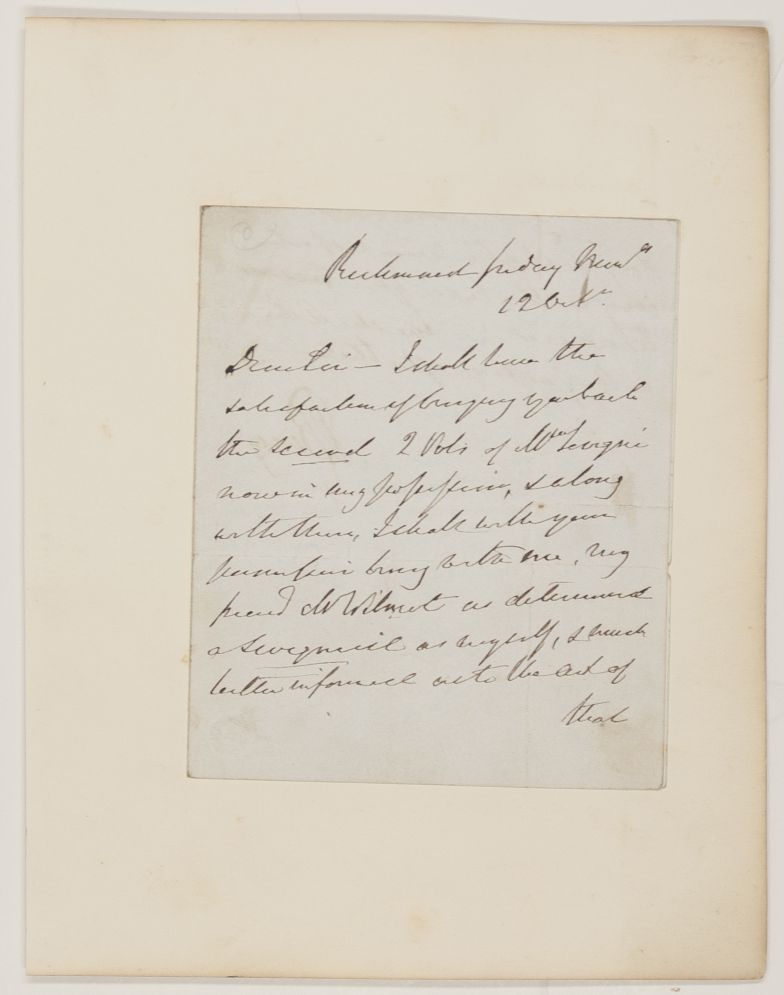 Richmond friday
12 Octr.
Dear Sir – I shall have the
satisfaction of bringing you back
the second 2 Vols of Me Sevigné
now in my possession, & along
with them, I shall with your
permission bring with me, my
friend Mr Wilmot as determined
a Sevignéist as myself, & much
better informed as to the act of
that